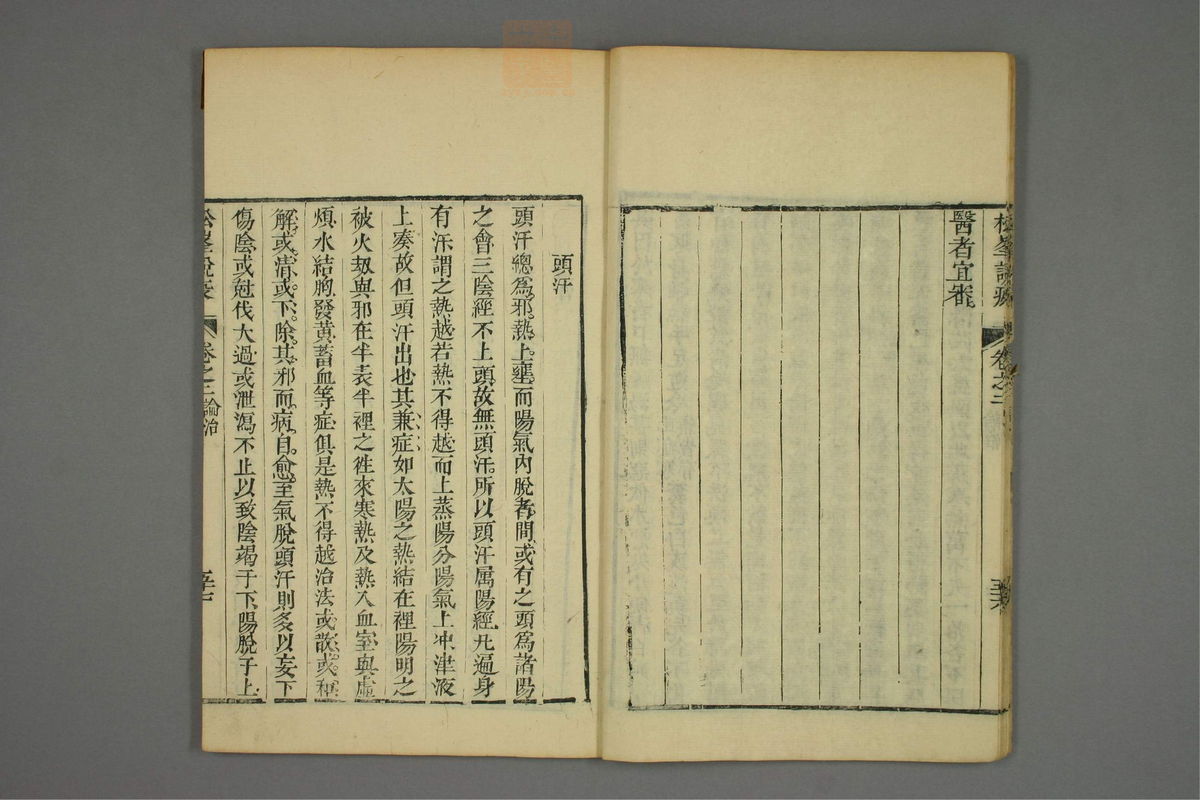 松峯說疫
卷之二
醫者宜審
頭汗
頭汗總爲邪熱上壅而陽氣內脫者間或有之頭爲諸陽
之會三陰經不上頭故無頭汗所以頭汗属陽經凡遍身
有汗謂之熱越若熱不得越而上蒸陽分陽氣上冲津液
上凑故但頭汗出也其兼症如太陽之熱結在裡陽明之
被火刼與邪在半表半裡之徃來寒熱及熱入血室與虛
煩水結胸發黃蓄血等症俱是熱不得越治法或散或和
解或清或下除其邪而病自愈至氣脫頭汗則多以妄下
傷陰或尅伐大過或泄瀉不止以致陰竭于下陽脫于上
松峯說疫
卷之二
論治